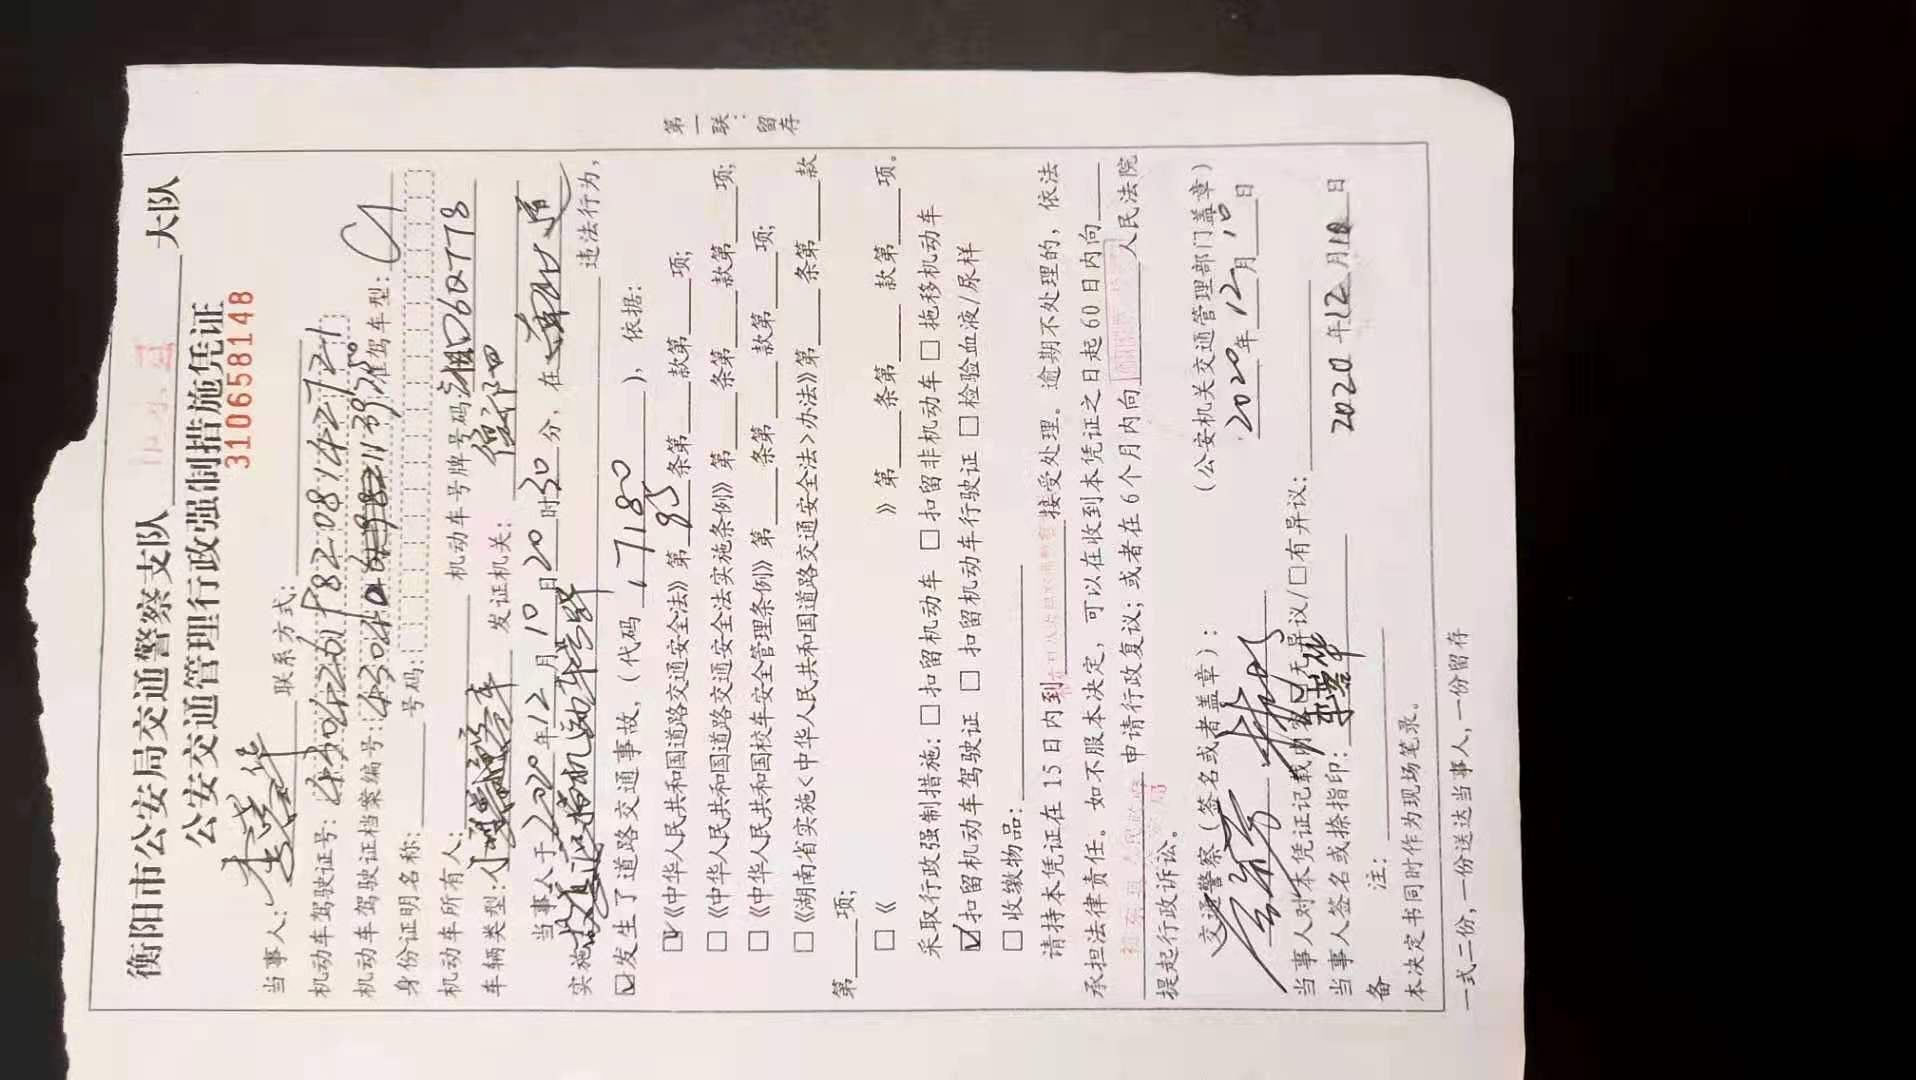 第一联：留存
衡阳市公安局交通警察支队 大队
公安交通管理行政强制措施凭证
310658148
当事人： 李 华 联系方式：
机动车驾驶证号： 准驾车型： C1
机动车驾驶证档案编号：
身份证明名称： 号码：
机动车所有人： 机动车号牌号码 湘D6QT78
车辆类型： 小 发证机关： 衡阳
当事人于 2020 年 12 月 10 日 20 时 30 分，在
实施 机动车 违法行为，
☑发生了道路交通事故，（代码 17180 ），依据：
☑《中华人民共和国道路交通安全法》第 95 条第 款第 项；
□《中华人民共和国道路交通安全法实施条例》第 条第 款第 项；
□《中华人民共和国校车安全管理条例》第 条第 款第 项；
□《湖南省实施<中华人民共和国道路交通安全法>办法》第 条第 款
第 项；
□《 》第 条第 款第 项。
采取行政强制措施：□扣留机动车 □扣留非机动车 □拖移机动车
☑扣留机动车驾驶证 □扣留机动车行驶证 □检验血液/尿样
□收缴物品：
请持本凭证在15日内到 接受处理。逾期不处理的，依法
承担法律责任。如不服本决定，可以在收到本凭证之日起60日内向
申请行政复议；或者在6个月内向 人民法院
提起行政诉讼。
交通警察（签名或者盖章）： （公安机关交通管理部门盖章）
2020 年 12 月 10 日
当事人对本凭证记载内容□无异议/□有异议：
当事人签名或捺指印： 李 华 2020 年 12 月 10 日
备 注：
本决定书同时作为现场笔录。
一式二份，一份送达当事人，一份留存